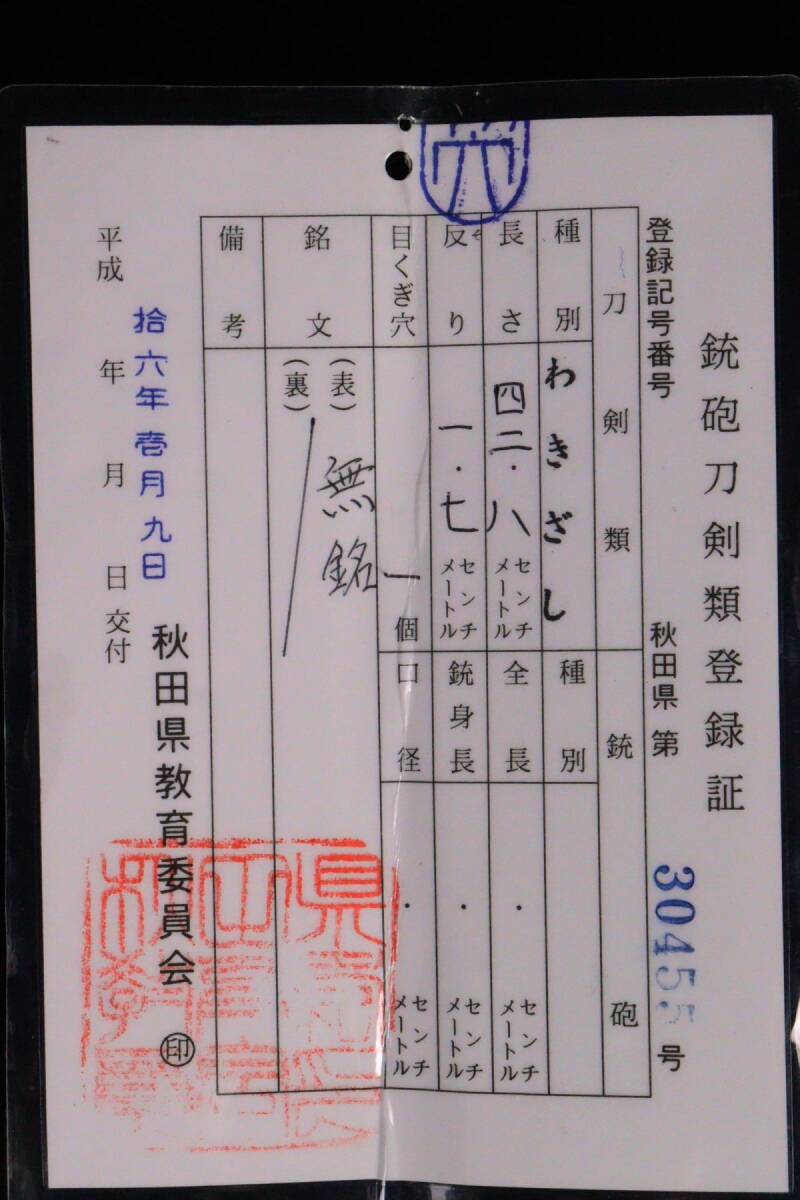 銃砲刀剣類登録証
登録記号番号 秋田県 第 30455 号
刀剣類 銃砲
種別 わきざし 種別
長さ 四二・八 センチメートル 全長 ・ センチメートル
反り 一・七 センチメートル 銃身長 ・ センチメートル
目くぎ穴 一個 口径 ・ センチメートル
銘文 (表) 無銘
(裏)
備考
平成 拾六年 壱月 九日 交付
秋田県教育委員会 印